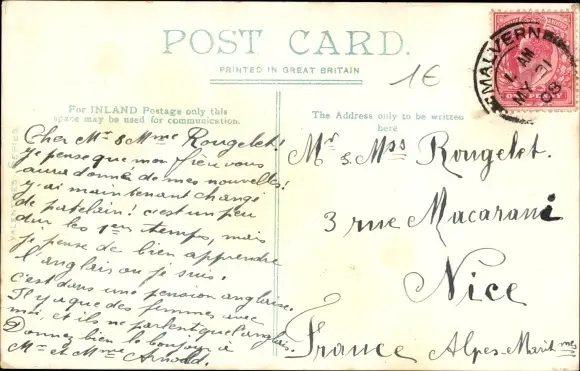 POST CARD.
PRINTED IN GREAT BRITAIN
1€
MALVERN
1 AM
MY 21
08
For INLAND Postage only this
space may be used for communication.
The Address only to be written
here
VALENTINES SERIES
Cher Mr & Mme Rougelet!
Je pense que mon frère vous
aura donné de mes nouvelles!
J'ai maintenant changé
de patelain! c'est un peu
dur les 1ers temps, mais
je pense de bien apprendre
l'anglais ou je suis.
c'est dans une pension anglaise.
Il y a que des femmes avec
moi, et ils ne parlent que l'anglais.
Donnez bien le bonjour à
Mr et Mme Arnold.
Mr & Mss Rougelet.
3 rue Macarani
Nice
France Alpes-Maritmes